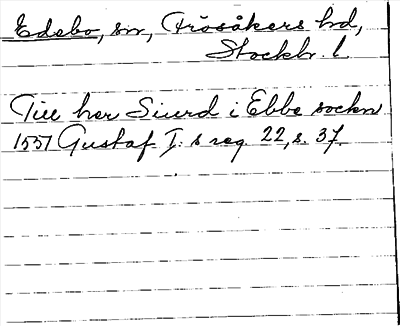 Edebo, sn, Frösåkers hd,
Stockh. l.
Till her Siurd i Ebbe sockn
1557 Gustaf I:s reg. 22, s. 37.